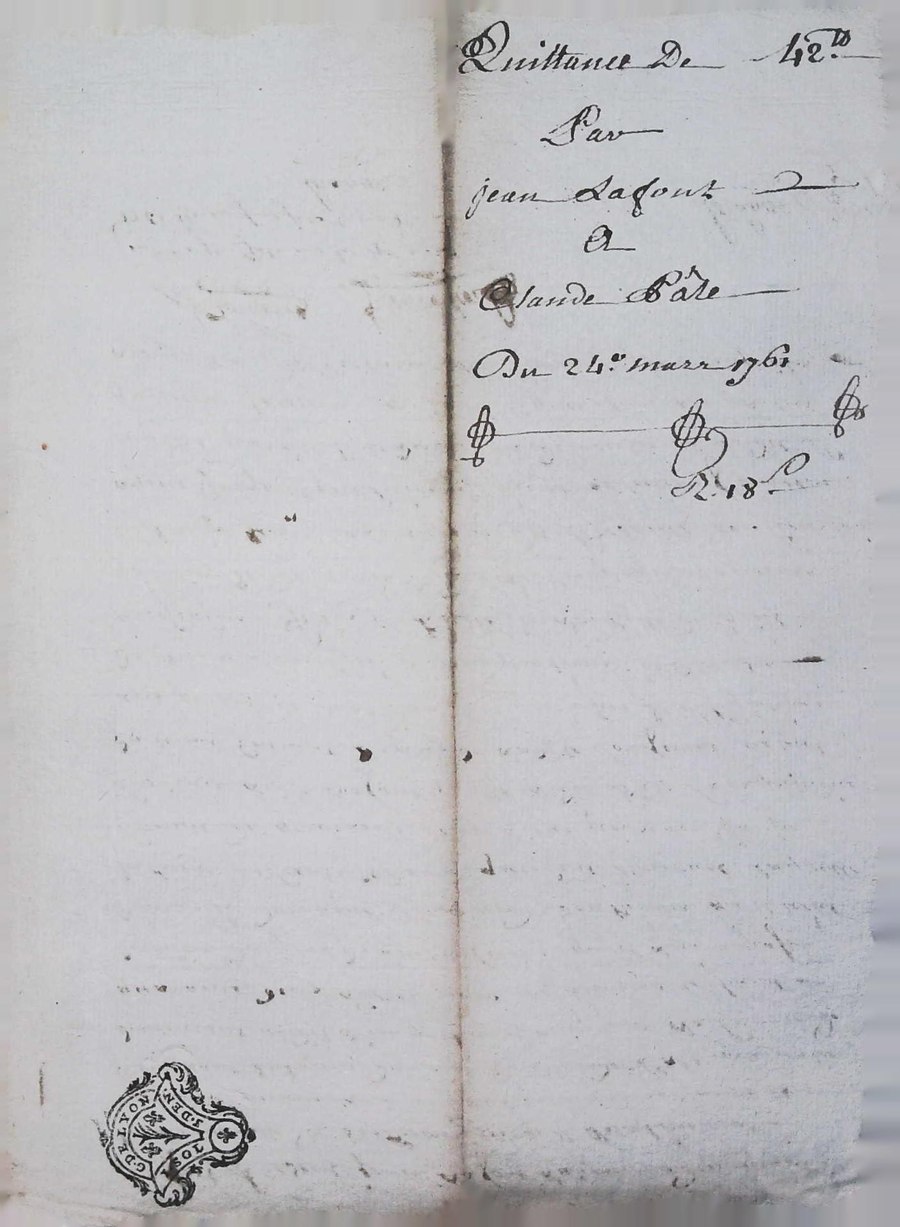 Quittance De 42.lt
Par
jean Lafont
Et
Claude Pâle
Du 24.e mars 1761
R. 18 s
G. DE LYON
SOLS. DEN.